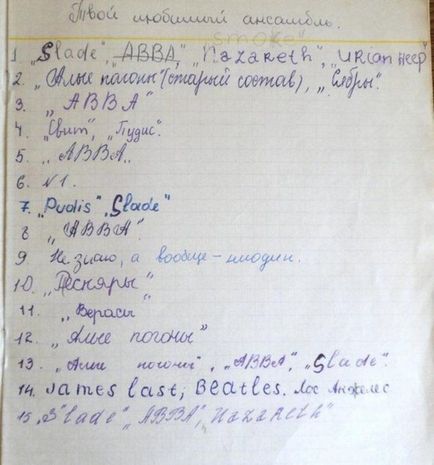 Твой любимый ансамбль.
Smoke"
1 „Slade", ABBA, "Nazareth", „URian HEEP"
2. „Алые погоны" (старый состав), „Сябры".
3. „ABBA"
4. „Свит", „Пудис".
5. „ABBA„
6. N1.
7. „Pudis" „Slade"
8 „ABBA".
9 Не знаю, а вообще – ниодин.
10. „Песняры"
11. „Верасы"
12. „Алые погоны"
13. „Алые погоны", „ABBA", „Slade".
14. James last, Beatles. Лос Анжелес
15 „Slade" „ABBA", „Nazareth"